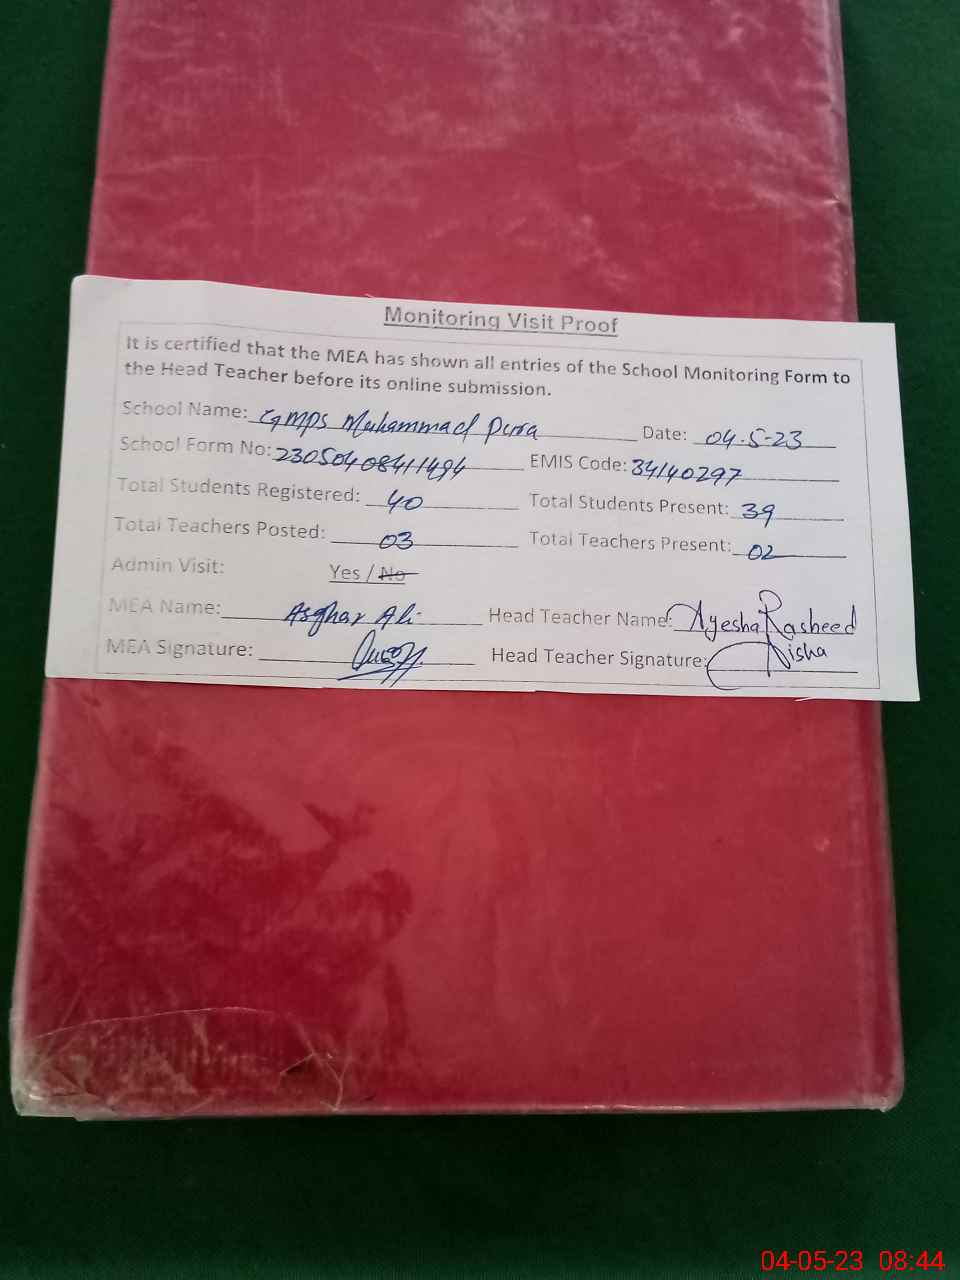 Monitoring Visit Proof
It is certified that the MEA has shown all entries of the School Monitoring Form to
the Head Teacher before its online submission.
School Name: GMPS Muhammad Pura Date: 04-5-23
School Form No: 23050408411494 EMIS Code: 34140297
Total Students Registered: 40 Total Students Present: 39
Total Teachers Posted: 03 Total Teachers Present: 02
Admin Visit: Yes / No
MEA Name: Asghar Ali Head Teacher Name: Ayesha Rasheed
MEA Signature: Head Teacher Signature: Aisha
04-05-23 08:44